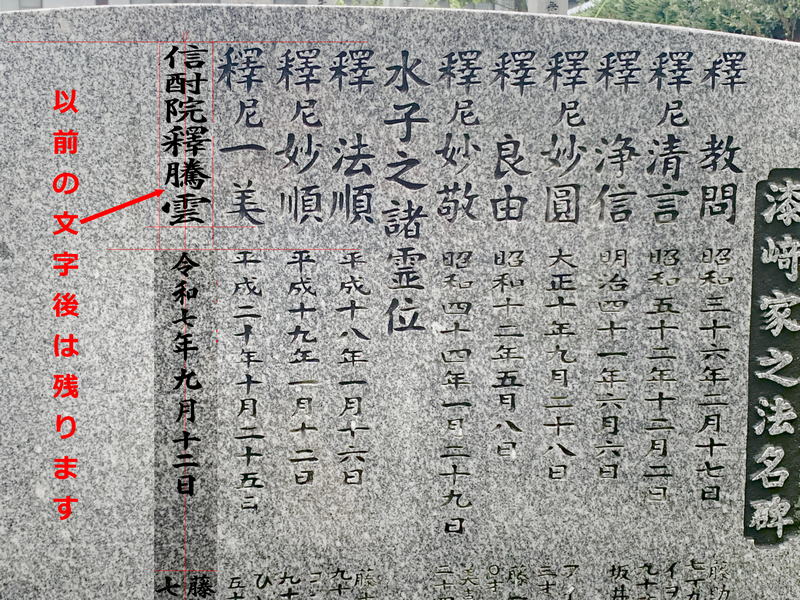 漆﨑家之法名碑
釋 教問 昭和三十六年二月十七日
釋尼清言 昭和五十二年十二月二日
釋 浄信 明治四十一年六月六日
釋尼妙圓 大正十年九月二十八日
釋 良由 昭和十二年五月八日
釋尼妙敬 昭和四十四年一月二十九日
水子之諸霊位
釋 法順 平成十八年一月十六日
釋尼妙順 平成十九年一月十二日
釋尼一美 平成二十年十月二十五日
信酎院釋騰雲 令和七年九月十二日
藤
七
以前の文字後は残ります